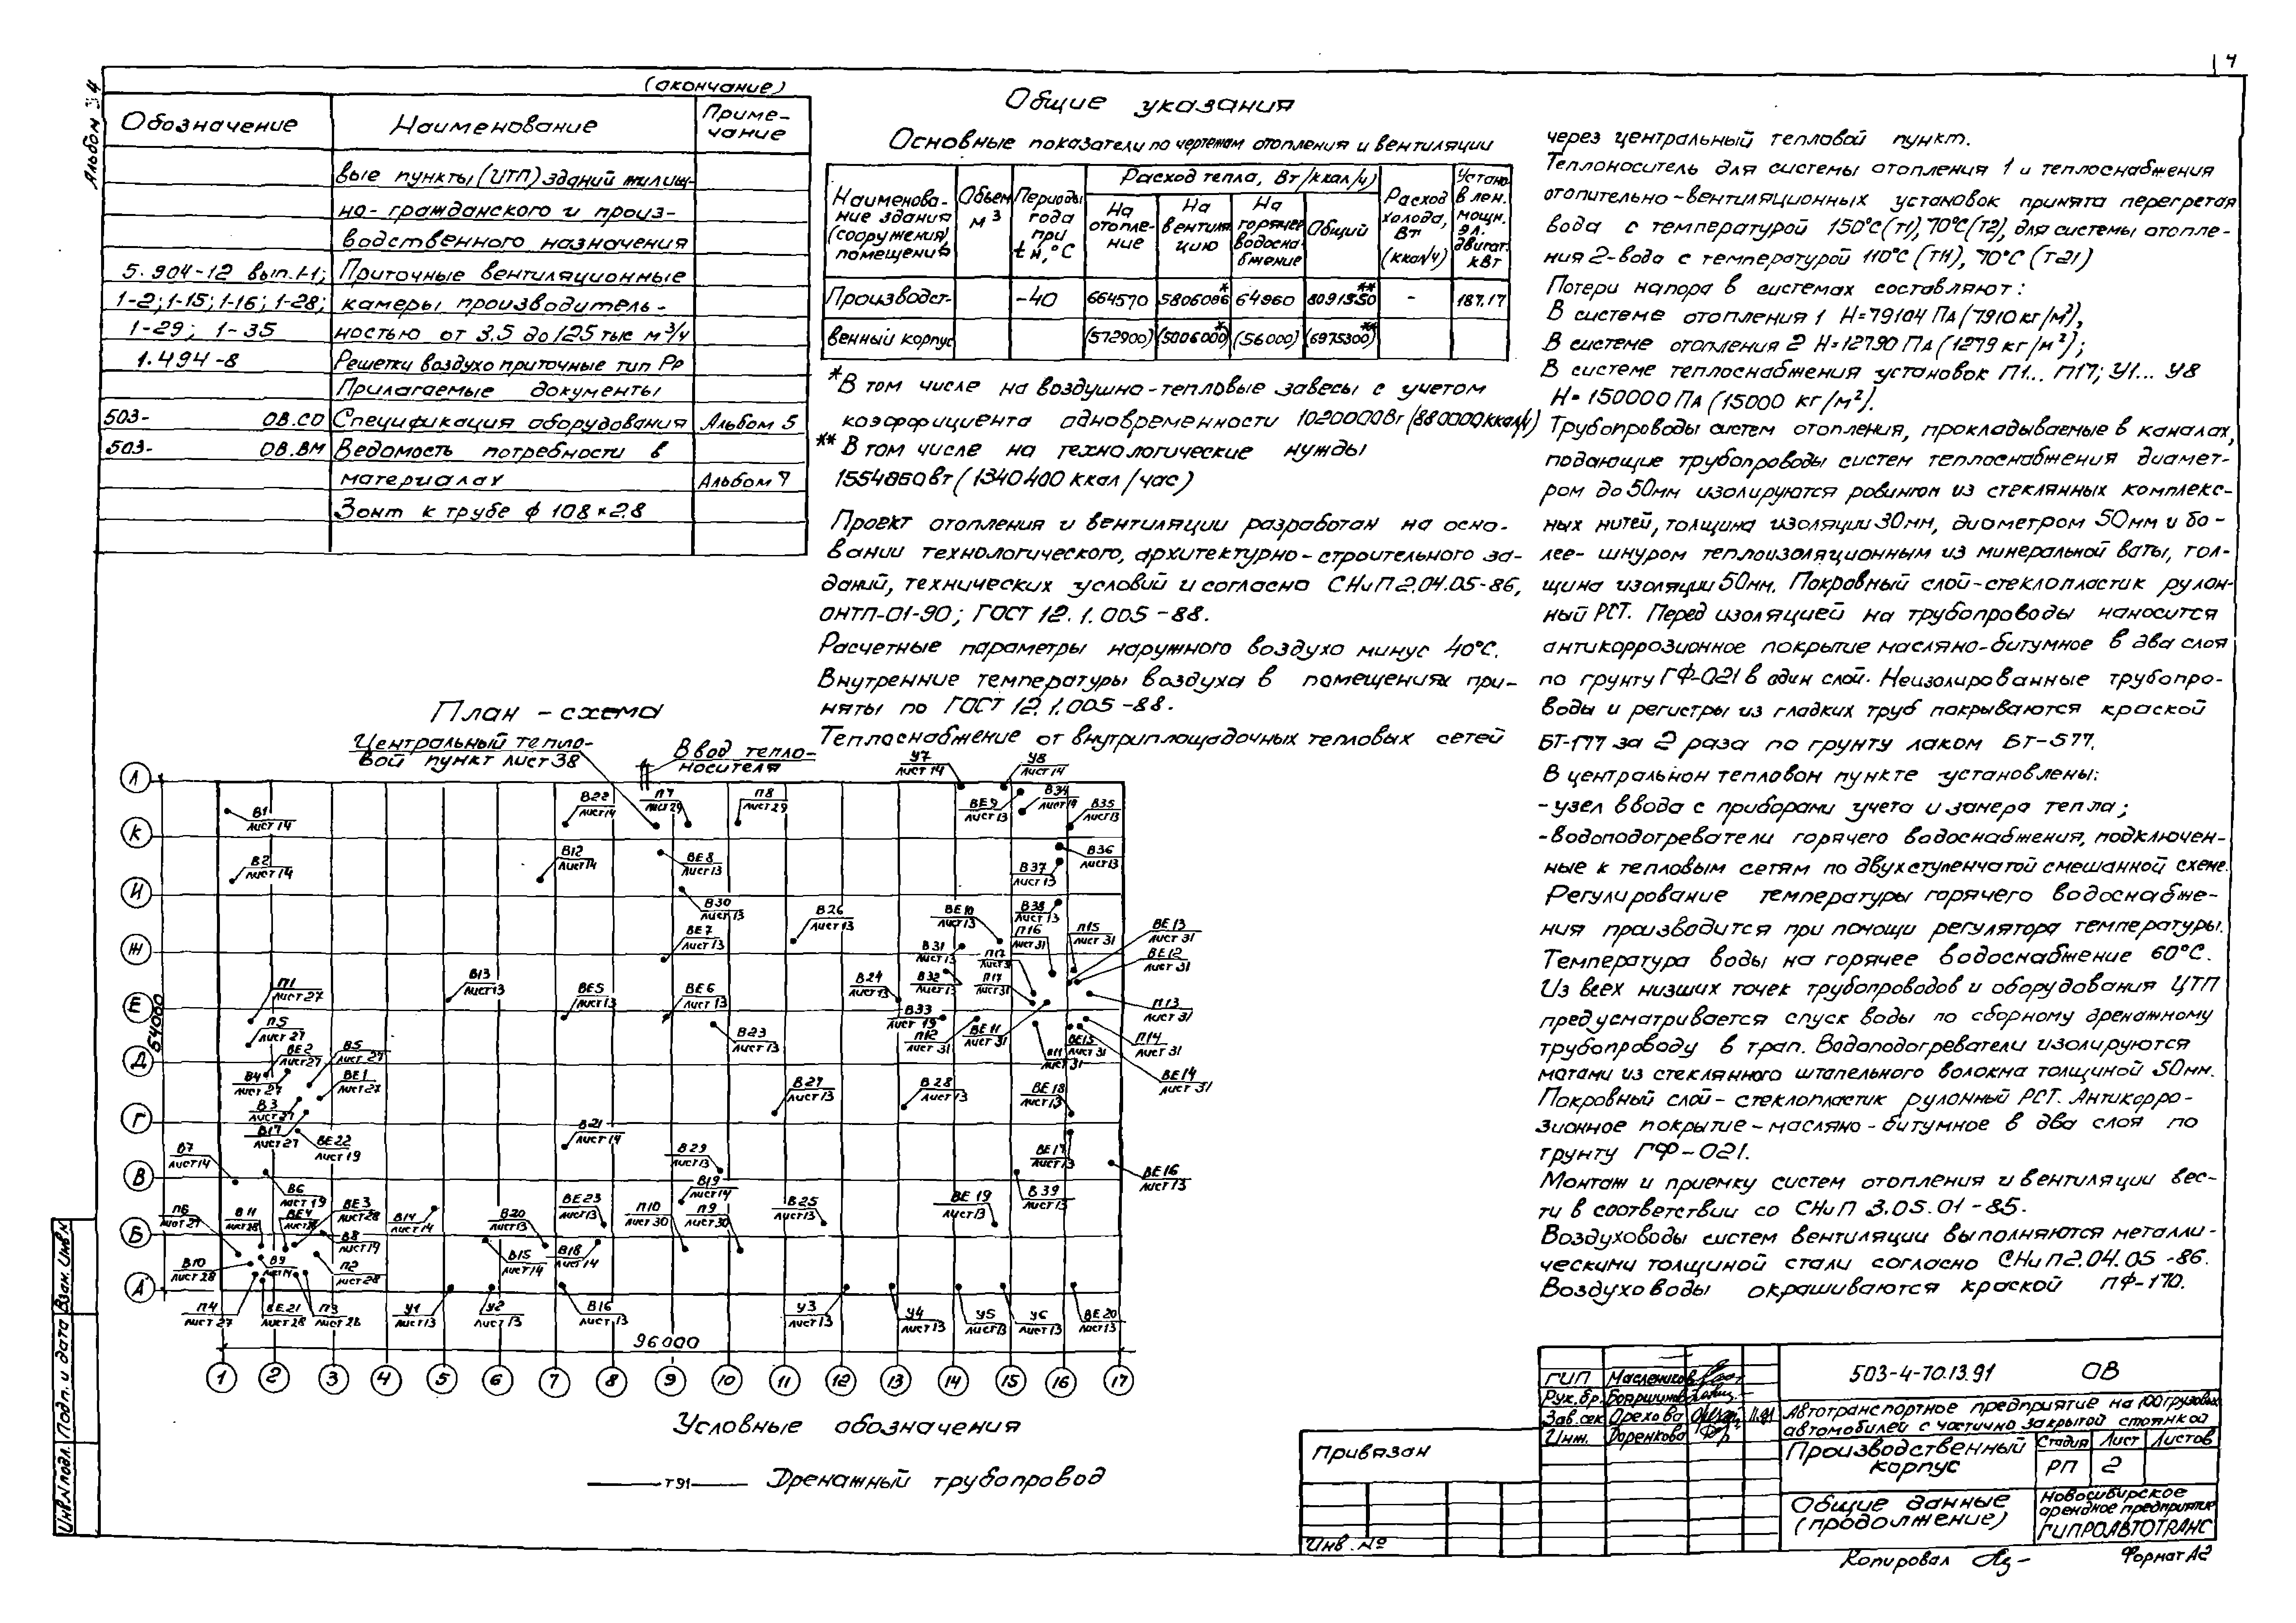 4
Альбом 34
(окончание)
Обозначение Наименование Приме-
чание
вые пункты (ИТП) зданий жилищ-
но-гражданского и произ-
водственного назначения
5.904-12 вып.1-1; Приточные вентиляционные
1-2; 1-15; 1-16; 1-28; камеры производитель-
1-29; 1-35 ностью от 3.5 до 125 тыс м³/ч
1.494-8 Решетки воздухо приточные тип РР
Прилагаемые документы
503- ОВ.СО Спецификация оборудования Альбом 5
503- ОВ.ВМ Ведомость потребности в
материалах Альбом 7
Зонт к трубе ф 108×2.8
Общие указания
Основные показатели по чертежам отопления и вентиляции
Наименова-
ние здания
(сооружения),
помещения
Объем
м³
Периоды
года
при
tн, °C
Расход тепла, Вт/ккал/ч)
На
отопле-
ние
На
вентиля
цию
На
горячее
водосна-
бжение
Общий
Расход
холода,
Вт
(ккал/ч)
Устано
в лен.
мощн.
эл.
двигат.
кВт
Производст- -40 664570 5806086* 64960 8091550** - 187.17
венный корпус (572900) (5006000)* (56000) (6975300)**
*В том числе на воздушно-тепловые завесы с учетом
коэффициента одновременности 1020000Вт (880000ккал/ч)
** В том числе на технологические нужды
1554860 Вт (1340400 ккал/час)
Проект отопления и вентиляции разработан на осно-
вании технологического, архитектурно-строительного за-
даний, технических условий и согласно СНиП 2.04.05-86,
ОНТП-01-90; ГОСТ 12.1.005-88.
Расчетные параметры наружного воздуха минус 40°С.
Внутренние температуры воздуха в помещениях при-
няты по ГОСТ 12.1.005-88.
Теплоснабжение от внутриплощадочных тепловых сетей
через центральный тепловой пункт.
Теплоноситель для системы отопления 1 и теплоснабжения
отопительно-вентиляционных установок принята перегретая
вода с температурой 150°С (Т1), 70°С (Т2), для системы отопле-
ния 2-вода с температурой 110°С (Т11), 70°С (Т21)
Потери напора в системах составляют:
В системе отопления 1 Н=79104 Па (7910 кг/м²),
В системе отопления 2 Н=12790 Па (1279 кг/м²);
В системе теплоснабжения установок П1... П17; У1... У8
Н=150000 Па (15000 кг/м²).
Трубопроводы систем отопления, прокладываемые в каналах,
подающие трубопроводы систем теплоснабжения диамет-
ром до 50мм изолируются ровингом из стеклянных комплекс-
ных нитей, толщина изоляции 30мм, диаметром 50мм и бо-
лее- шнуром теплоизоляционным из минеральной ваты, тол-
щина изоляции 50мм. Покровный слой-стеклопластик рулон-
ный РСТ. Перед изоляцией на трубопроводы наносится
антикоррозионное покрытие масляно-битумное в два слоя
по грунту ГФ-021 в один слой. Неизолированные трубопро-
воды и регистры из гладких труб покрываются краской
БТ-177 за 2 раза по грунту лаком БТ-577.
В центральном тепловом пункте установлены:
-узел ввода с приборами учета и замера тепла;
-водоподогреватели горячего водоснабжения, подключен-
ные к тепловым сетям по двухступенчатой смешанной схеме.
Регулирование температуры горячего водоснабже-
ния производится при помощи регулятора температуры.
Температура воды на горячее водоснабжение 60°С.
Из всех низших точек трубопроводов и оборудования ЦТП
предусматривается спуск воды по сборному дренажному
трубопроводу в трап. Водоподогреватели изолируются
матами из стеклянного штапельного волокна толщиной 50мм.
Покровный слой-стеклопластик рулонный РСТ. Антикорро-
зионное покрытие-масляно-битумное в два слоя по
грунту ГФ-021.
Монтаж и приемку систем отопления и вентиляции вес-
ти в соответствии со СНиП 3.05.01-85.
Воздуховоды систем вентиляции выполняются металли-
ческими толщиной стали согласно СНиП 2.04.05-86.
Воздуховоды окрашиваются краской ПФ-170.
План-схема
Центральный тепло-
вой пункт лист 38
Ввод тепло-
носителя
У7
лист 14
У8
лист 14
Л
К
И
Ж
Е
Д
Г
В
Б
А
54000
В1
лист 14
В22
лист14
П7
лист29
П8
лист29
ВЕ9
лист13
В34
лист14
В35
лист13
В2
лист 14
В12
лист14
ВЕ8
лист13
В36
лист13
В37
лист13
В30
лист13
В26
лист13
ВЕ10
лист13
В38
лист13
ВЕ7
лист13
П16
лист31
П15
лист 31
ВЕ13
лист 31
ВЕ12
лист 31
В31
лист13
П17
лист31
П1
лист27
В13
лист13
ВЕ5
лист13
ВЕ6
лист13
В24
лист13
В32
лист13
П13
лист31
П5
лист 27
В23
лист13
В33
лист 19
П12
лист 31
ВЕ11
лист31
П11
лист31
ВЕ15
лист 31
П14
лист31
ВЕ14
лист 31
ВЕ2
лист27
В5
лист27
В4
лист27
ВЕ1
лист27
В3
лист27
В17
лист27
ВЕ22
лист19
В27
лист13
В28
лист13
ВЕ18
лист13
В21
лист14
В7
лист14
В29
лист13
ВЕ17
лист13
ВЕ16
лист13
В6
лист19
В19
лист14
В39
лист13
П6
лист27
В11
лист28
ВЕ4
ВЕ3
лист28
В14
лист14
В20
лист13
ВЕ23
лист13
П10
лист30
П9
лист30
В25
лист13
ВЕ19
лист13
В8
лист19
В10
лист28
В9
П2
лист28
В15
лист14
В18
лист14
П4
лист27
ВЕ21
лист 28
П3
лист28
У1
лист13
У2
лист13
В16
лист13
У3
лист13
У4
лист13
У5
лист13
У6
лист13
ВЕ20
лист13
96000
1 2 3 4 5 6 7 8 9 10 11 12 13 14 15 16 17
Условные обозначения
Т91 Дренажный трубопровод
Инв.№подл. Подп. и дата Взам. Инв.№
Привязан
Инв. №
ГИП Маслеников
Рук.бр. Бояршинов
Зав.сек Орехова 11.91
Инж. Доренкова
503-4-70.13.91 ОВ
Автотранспортное предприятие на 100 грузовых
автомобилей с частично закрытой стоянкой
Производственный
корпус
Стадия Лист Листов
РП 2
Общие данные
(продолжение)
Новосибирское
арендное предприятие
ГИПРОАВТОТРАНС
Копировал
Формат А2